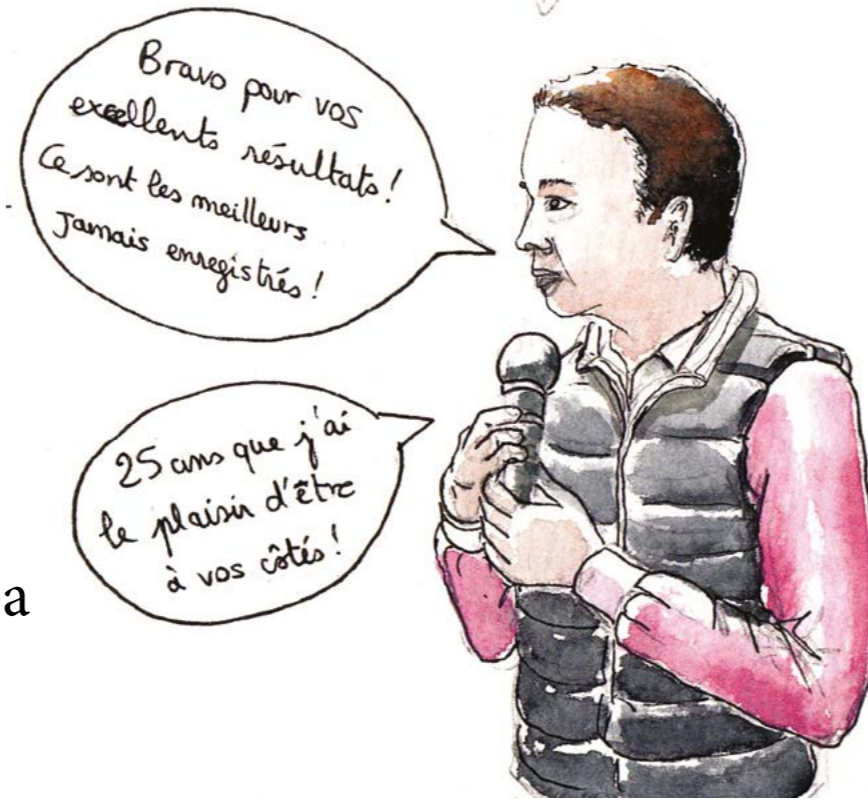 Bravo pour vos
excellents résultats!
Ce sont les meilleurs
Jamais enregistrés!
25 ans que j'ai
le plaisir d'être
à vos côtés!
a